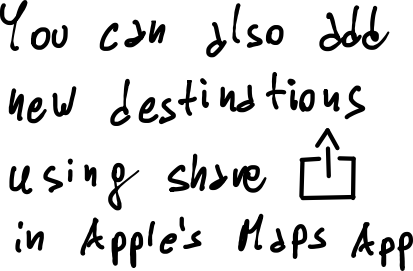 You can also add
new destinations
using share
in Apple's Maps App